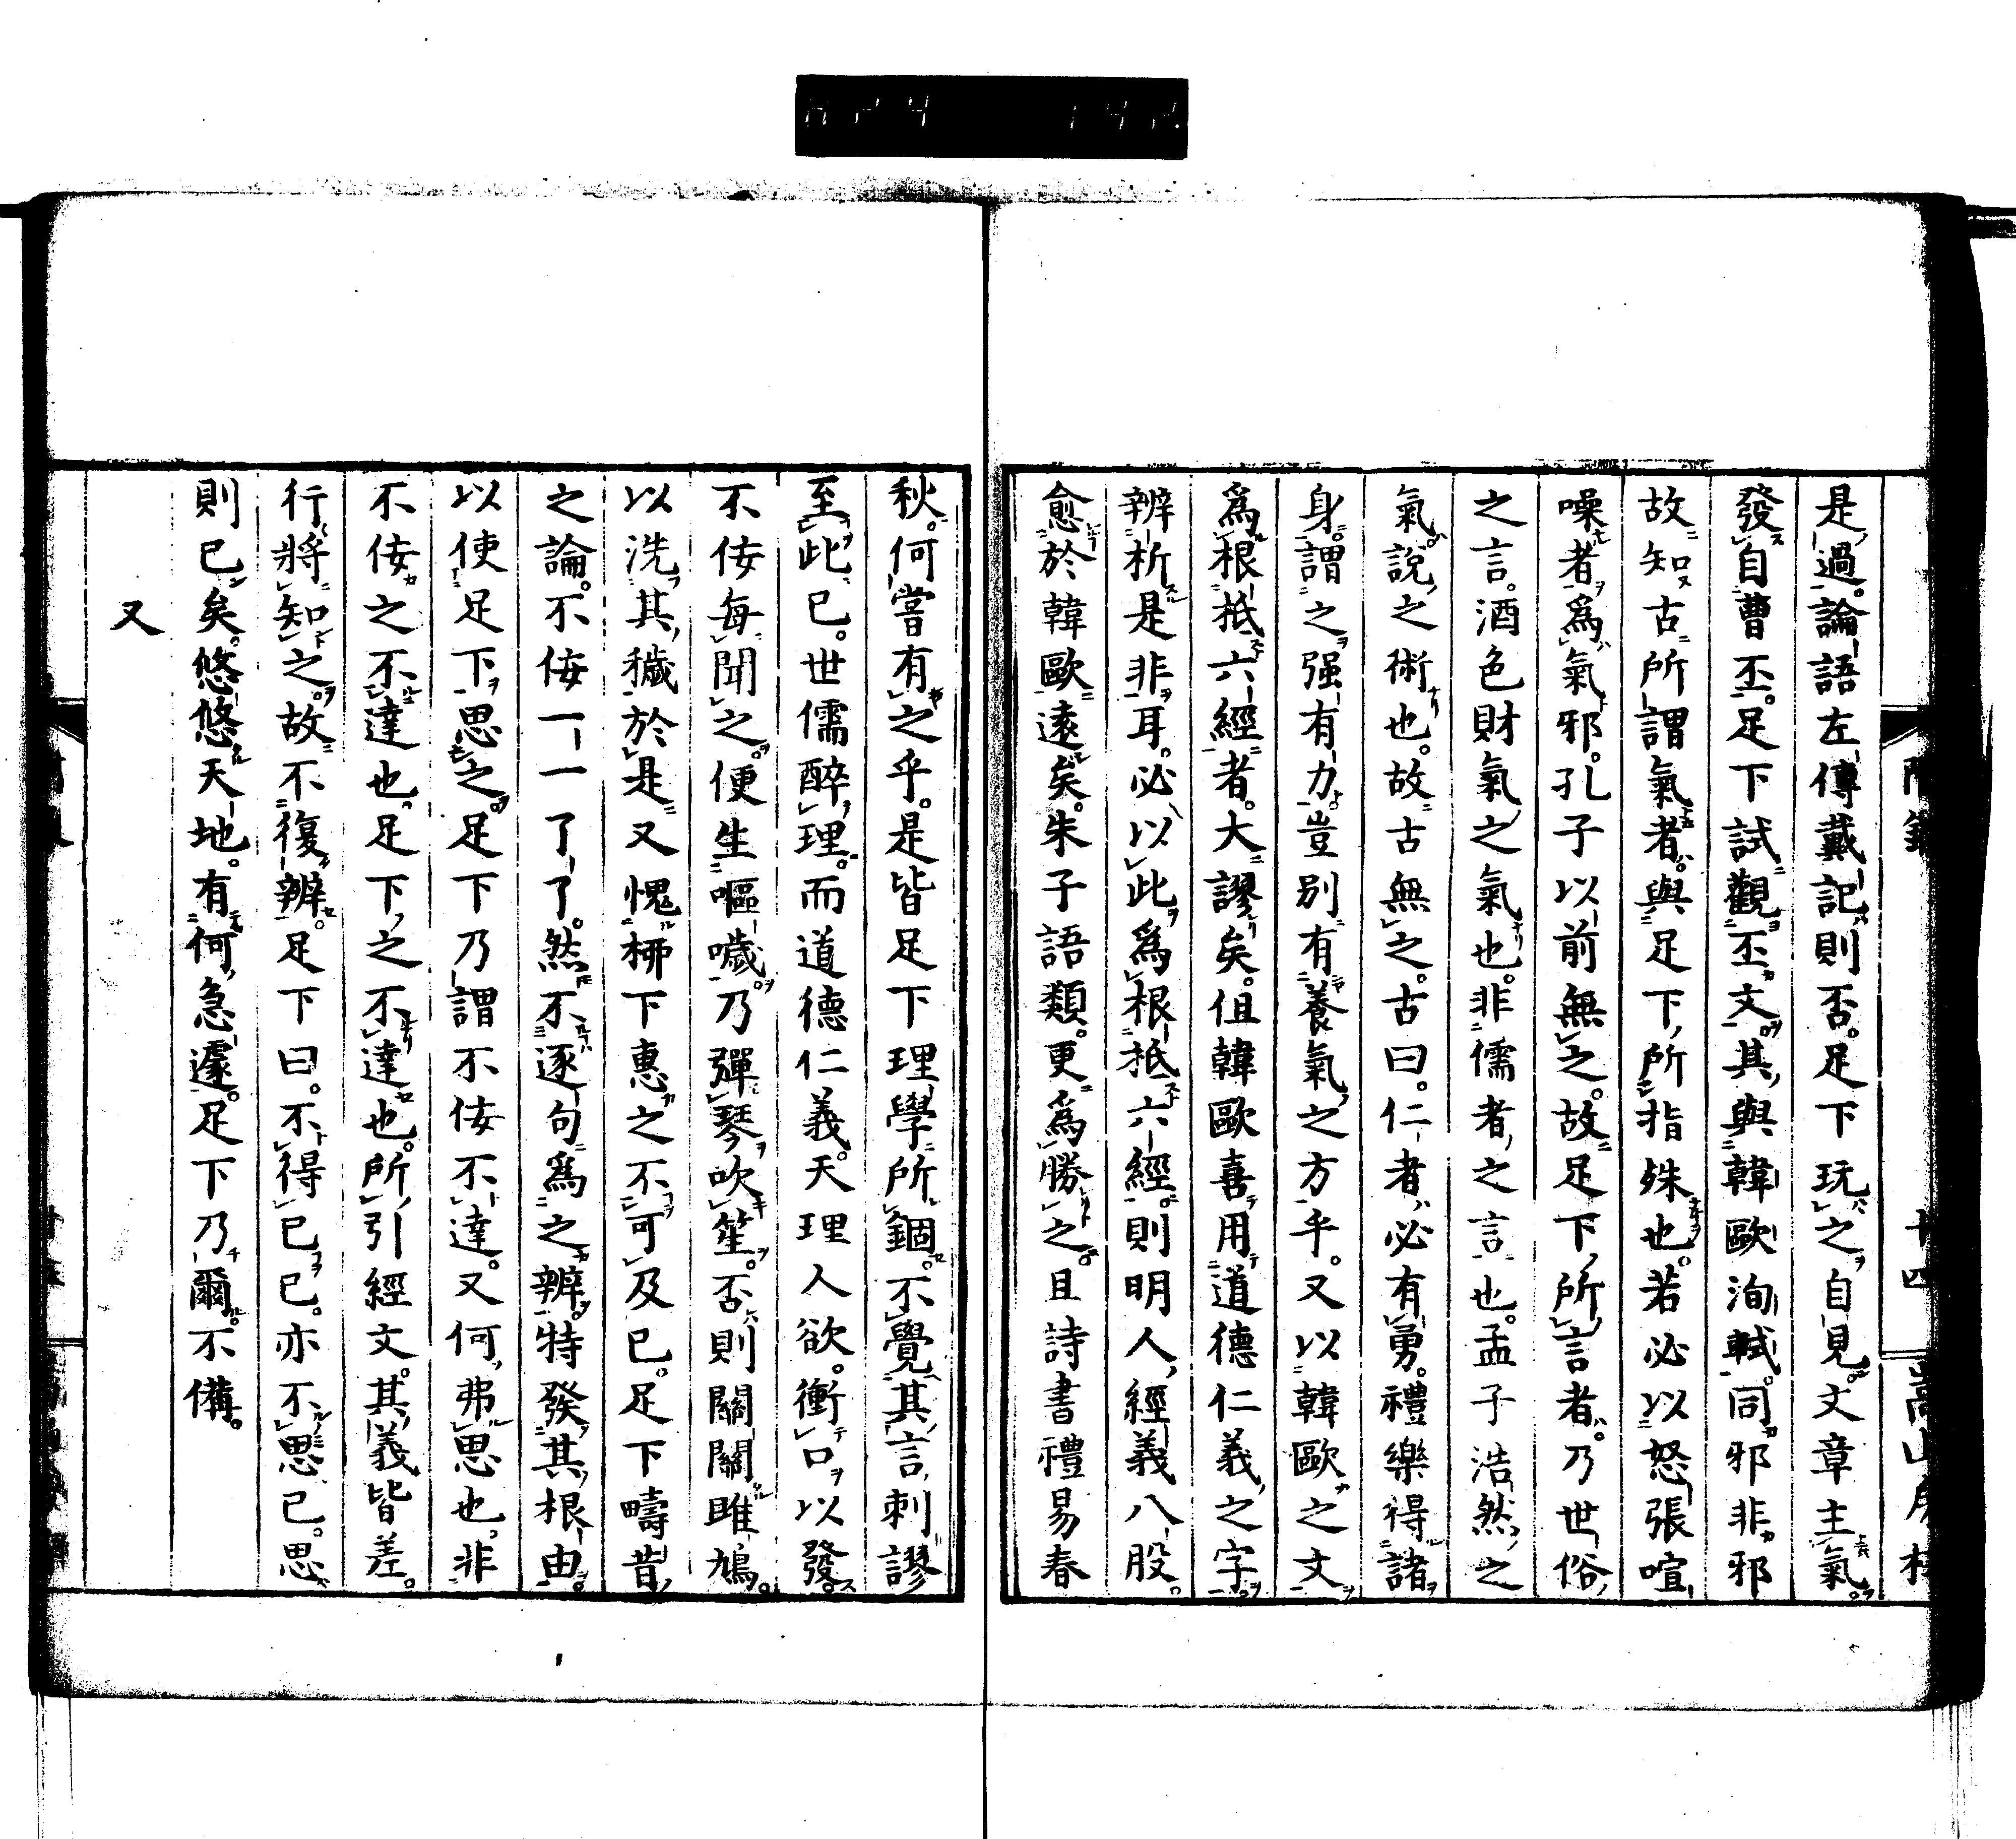 是過。論語左傳戴記則否。足下玩之自見。文章主氣。
發自曹丕。足下試觀丕文。其與韓歐洵軾。同邪非邪
故知古所謂氣者。與足下所指殊也。若必以怒張喧
噪者爲氣邪。孔子以前無之。故足下所言者。乃世俗
之言。酒色財氣之氣也。非儒者之言也。孟子浩然之
氣。說之術也。故古無之。古曰。仁者必有勇。禮樂得諸
身。謂之强有力。豈别有養氣之方乎。又以韓歐之文
爲根柢六經者。大謬矣。但韓歐喜用道德仁義之字。
辨析是非耳。必以此爲根柢六經。則明人經義八股。
愈於韓歐遠矣。朱子語類。更爲勝之。且詩書禮易春
秋。何嘗有之乎。是皆足下理學所錮。不覺其言刺謬
至此已。世儒醉理。而道德仁義。天理人欲。衝口以發。
不佞每聞之。便生嘔噦。乃彈琴吹笙。否則關關雎鳩。
以洗其穢。於是又愧柳下惠之不可及已。足下疇昔
之論。不佞一一了了。然不逐句爲之辨。特發其根由。
以使足下思之。足下乃謂不佞不達。又何弗思也。非
不佞之不達也。足下之不達也。所引經文。其義皆差。
行將知之。故不復辨。足下曰。不得已已。亦不思已。思
則已矣。悠悠天地。有何急遽。足下乃爾。不備。
又